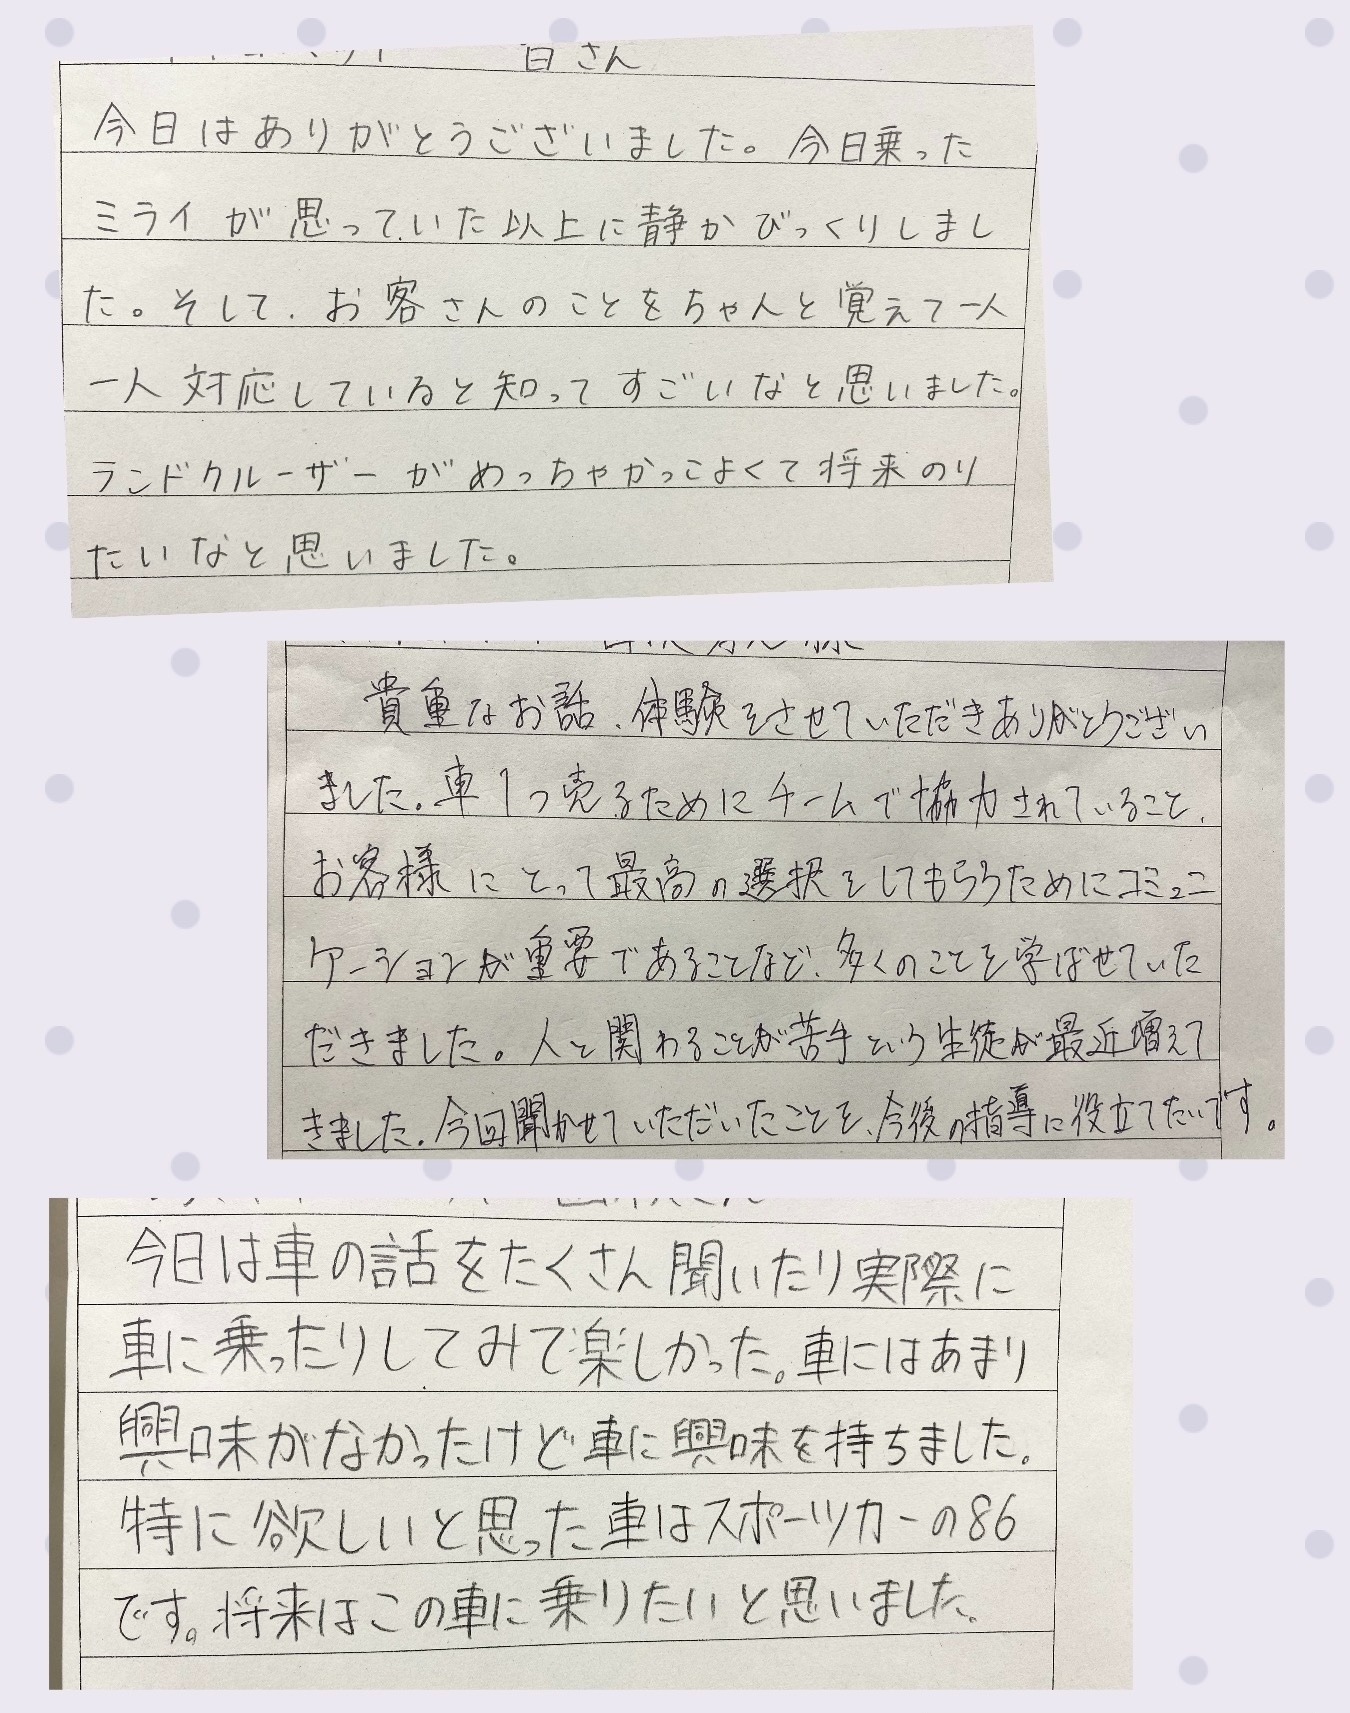 白さん
今日はありがとうございました。今日乗った
ミライが思っていた以上に静かびっくりしまし
た。そして、お客さんのことをちゃんと覚えて一人
一人対応していると知ってすごいなと思いました。
ランドクルーザーがめっちゃかっこよくて将来のり
たいなと思いました。
貴重なお話、体験をさせていただきありがとうござい
ました。車1つ売るためにチームで協力されていること、
お客様にとって最高の選択をしてもらうためにコミュニ
ケーションが重要であることなど、多くのことを学ばせていた
だきました。人と関わることが苦手という生徒が最近増えて
きました。今回聞かせていただいたことを、今後の指導に役立てたいです。
今日は車の話をたくさん聞いたり実際に
車に乗ったりしてみて楽しかった。車にはあまり
興味がなかったけど車に興味を持ちました。
特に欲しいと思った車はスポーツカーの86
です。将来はこの車に乗りたいと思いました。